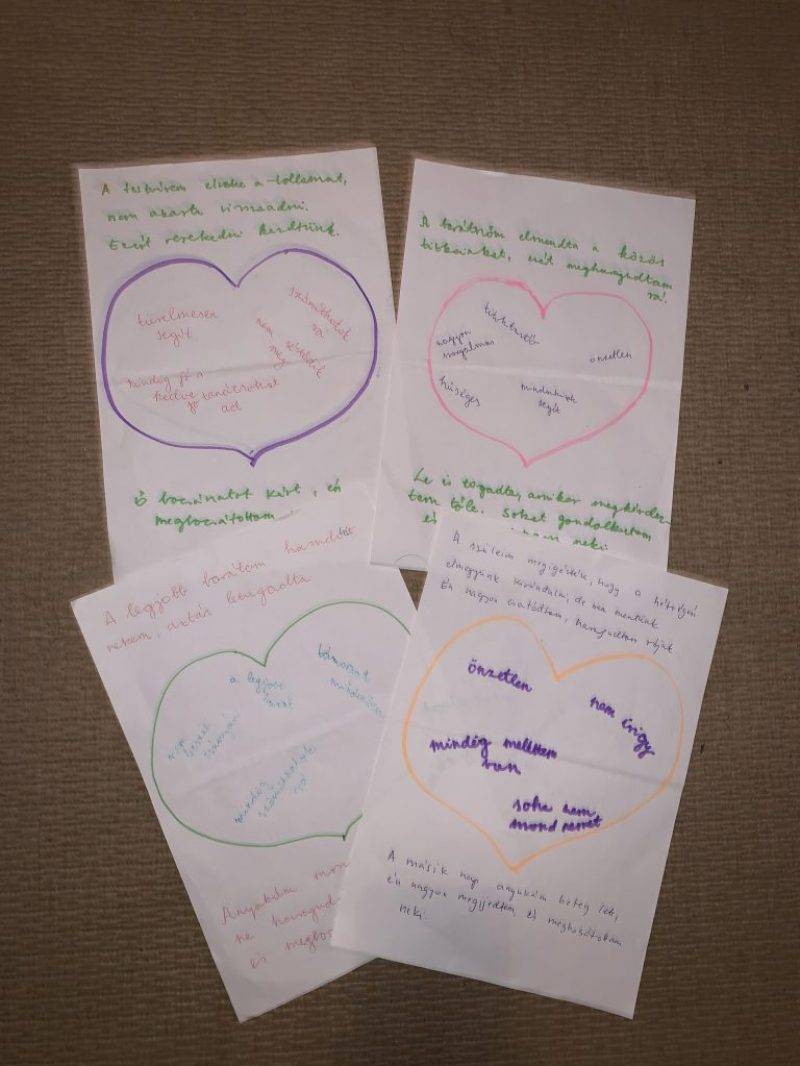 A testvérem elvette a tollamat,
nem akarta visszaadni.
Ezért veszekedni kezdtünk.
türelmesen
segít
számíthatok
rá
nem sértődik
meg
mindig jó a
kedve
jó tanácsokat
ad
Ő bocsánatot kért, én
megbocsátottam
A barátnőm elmondta a közös
titkainkat, ezért megharagudtam
rá.
nagyon
szorgalmas
önzetlen
hűséges
mindenkinek
segít
Le is tagadta, amikor megkérdez-
tem tőle. Sokat gondolkodtam
neki
A legjobb barátom
nekem, aztán letagadta
a legjobb
barát
mindig
számíthatok
rá
Anyukám
ne
és
A szüleim megígérték, hogy a hétvégén
elmegyünk kirándulni, de nem mentünk
Én nagyon csalódtam, haragudtam rájuk
önzetlen
nem irigy
mindég mellettem
van
soha nem
mond nemet
A másik nap anyukám beteg lett,
én nagyon megijedtem és megbocsátottam
neki.